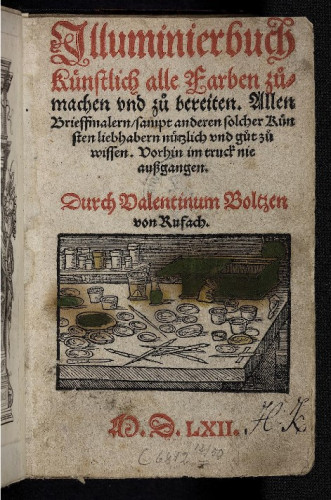 Illuminierbuch
Künstlich alle Farben zů-
machen vnd zů bereiten. Allen
Brieffmalern / sampt anderen solcher Kün
sten liebhabern nützlich vnd gůt zů
wissen. Vorhin im truck nie
außgangen.
Durch Valentinum Boltzen
von Rufach.
M. D. LXII.
H. K.